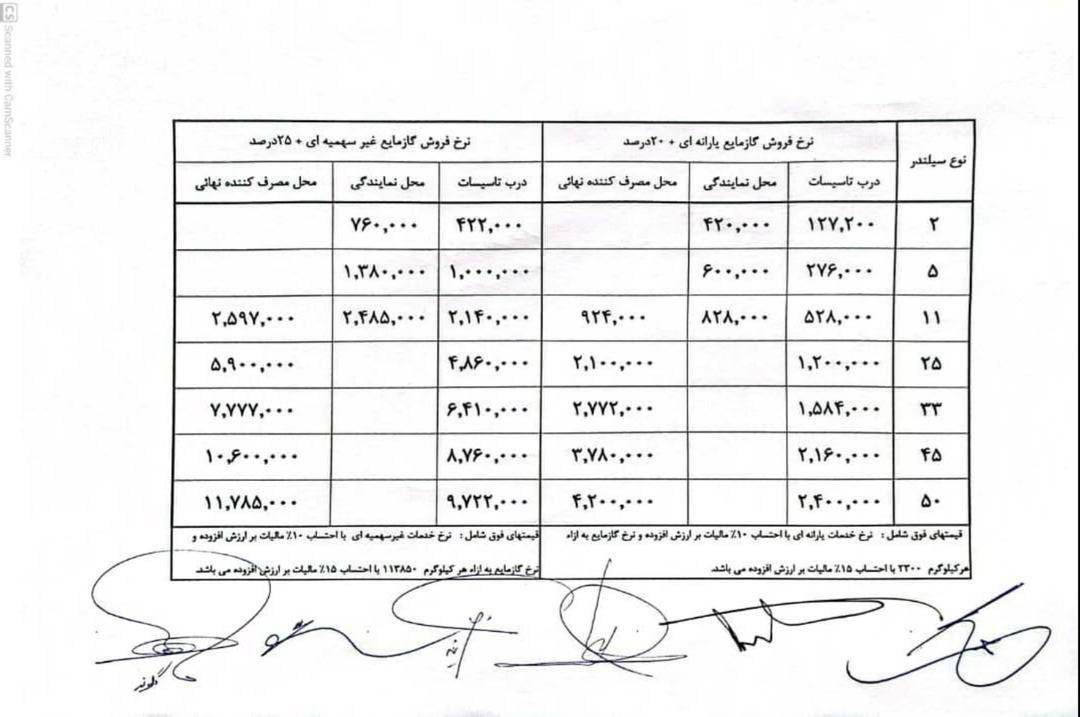 CS Scanned with CamScanner
نوع سیلندر | نرخ فروش گازمایع یارانه ای + ۲۰درصد | نرخ فروش گازمایع غیر سهمیه ای + ۲۵درصد
درب تاسیسات | محل نمایندگی | محل مصرف کننده نهائی | درب تاسیسات | محل نمایندگی | محل مصرف کننده نهائی
۲ | ۱۲۷,۲۰۰ | ۴۲۰,۰۰۰ | | ۴۲۲,۰۰۰ | ۷۶۰,۰۰۰ |
۵ | ۲۷۶,۰۰۰ | ۶۰۰,۰۰۰ | | ۱,۰۰۰,۰۰۰ | ۱,۳۸۰,۰۰۰ |
۱۱ | ۵۲۸,۰۰۰ | ۸۲۸,۰۰۰ | ۹۲۴,۰۰۰ | ۲,۱۴۰,۰۰۰ | ۲,۴۸۵,۰۰۰ | ۲,۵۹۷,۰۰۰
۲۵ | ۱,۲۰۰,۰۰۰ | | ۲,۱۰۰,۰۰۰ | ۴,۸۶۰,۰۰۰ | | ۵,۹۰۰,۰۰۰
۳۳ | ۱,۵۸۴,۰۰۰ | | ۲,۷۷۲,۰۰۰ | ۶,۴۱۰,۰۰۰ | | ۷,۷۷۷,۰۰۰
۴۵ | ۲,۱۶۰,۰۰۰ | | ۳,۷۸۰,۰۰۰ | ۸,۷۶۰,۰۰۰ | | ۱۰,۶۰۰,۰۰۰
۵۰ | ۲,۴۰۰,۰۰۰ | | ۴,۲۰۰,۰۰۰ | ۹,۷۲۲,۰۰۰ | | ۱۱,۷۸۵,۰۰۰
قیمتهای فوق شامل : نرخ خدمات یارانه ای با احتساب ۱۰٪ مالیات بر ارزش افزوده و نرخ گازمایع به ازاء
هرکیلوگرم ۲۳۰۰ با احتساب ۱۵٪ مالیات بر ارزش افزوده می باشد.
قیمتهای فوق شامل : نرخ خدمات غیرسهمیه ای با احتساب ۱۰٪ مالیات بر ارزش افزوده و
نرخ گازمایع به ازاء هر کیلوگرم ۱۱۳۸۵۰ با احتساب ۱۵٪ مالیات بر ارزش افزوده می باشد.